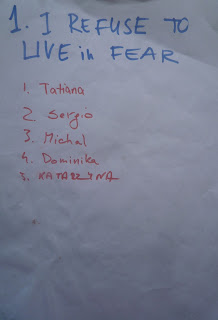 1. I REFUSE TO
LIVE in FEAR
1. Tatiana
2 Sergio
3. Michal
4. Dominika
5. KATARZYNA